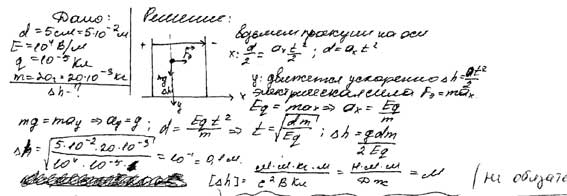 Дано:
d = 5см = 5·10⁻²м
E = 10⁴ В/м
q = 10⁻⁵ Кл
m = 20г = 20·10⁻³ кг
Δh - ?
Решение:
+ -
Fэ
mg
Δh
x
y
вдоль проекции на оси
x: d/2 = aₓt²/2; d = aₓt²
y: движется ускоренно Δh = gt²/2
электрическая сила Fэ = maₓ
Eq = maₓ ⇒ aₓ = Eq/m
mg = maᵧ ⇒ aᵧ = g; d = Eqt²/m ⇒ t = √(dm/Eq); Δh = gdm/2Eq
Δh = √(5·10⁻²·20·10⁻³/10⁴·10⁻⁵) = 10⁻¹ = 0,1м.
[Δh] = м·м·кг·м/с²·В·Кл = Н·м·м/Дж = м
(не обязате